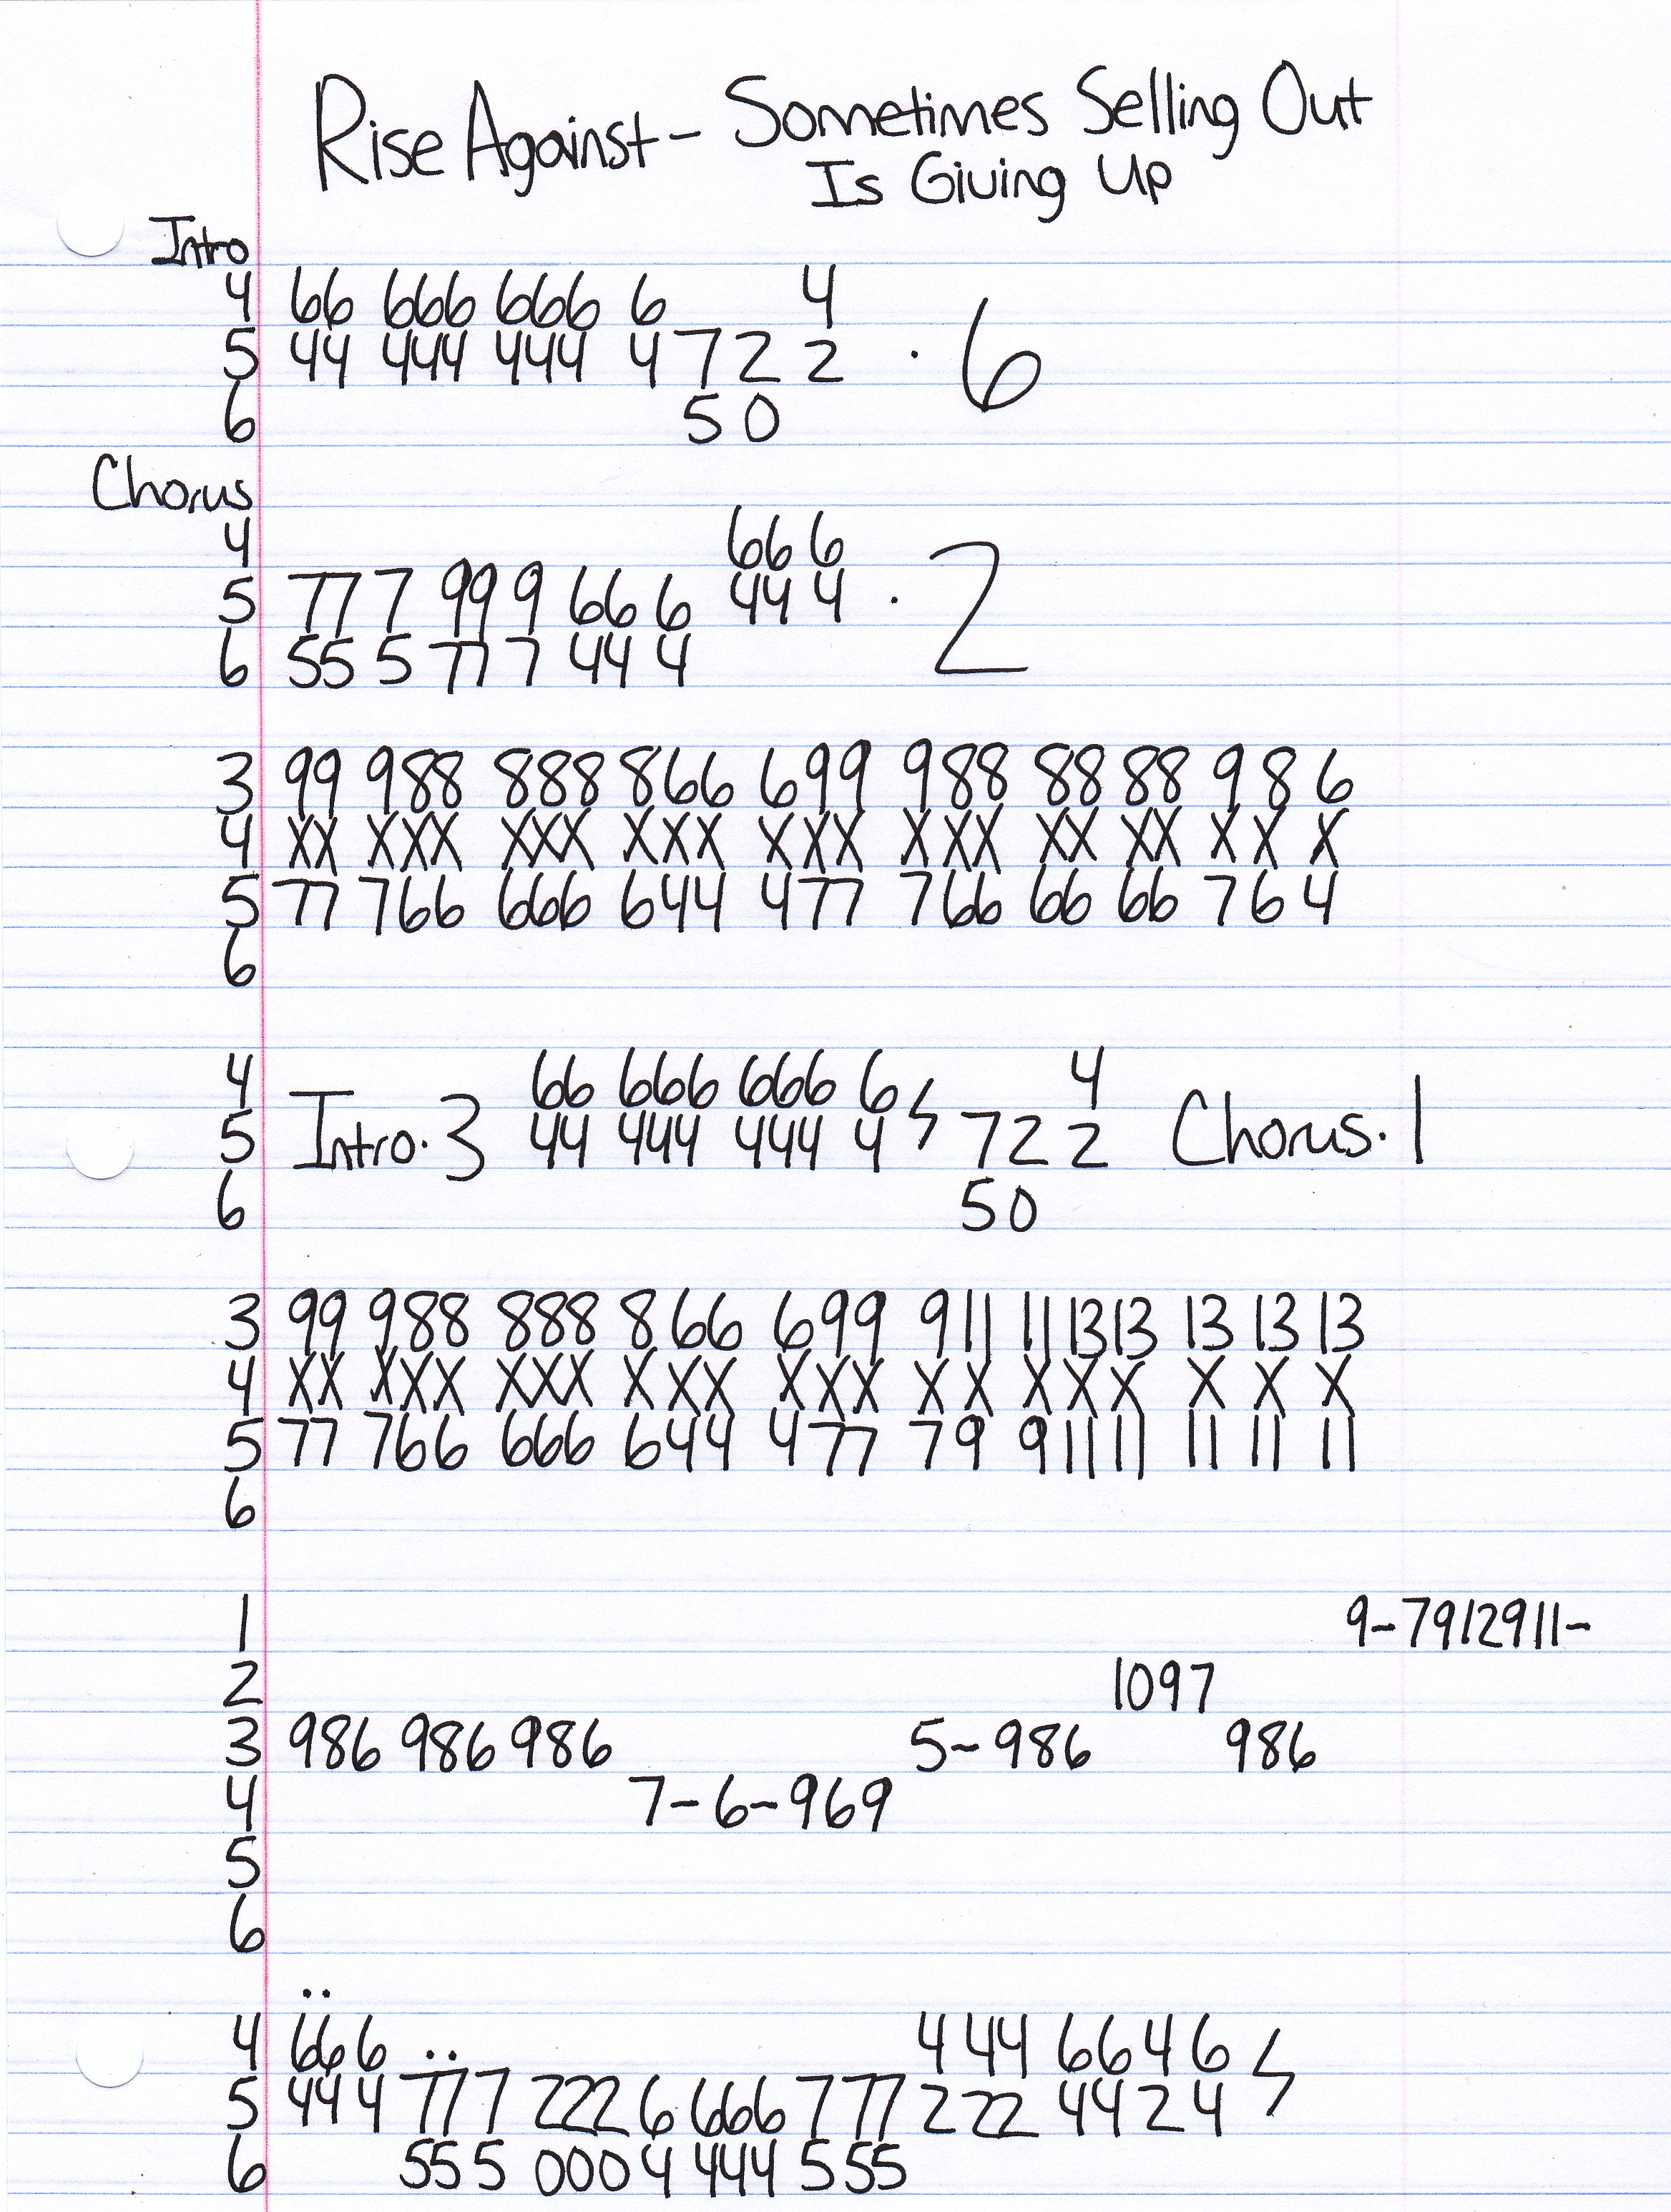 Rise Against - Sometimes Selling Out
Is Giving Up
Intro
4 66 666 666 6 4
5 44 444 444 4 7 2 2 · 6
6 5 0
Chorus
4 66 6
5 77 7 99 9 66 6 44 4 · 2
6 55 5 77 7 44 4
3 99 988 888 866 699 988 88 88 9 8 6
4 XX XXX XXX XXX XXX XXX XX XX X X X
5 77 766 666 644 477 766 66 66 7 6 4
6
4 66 666 666 6 4
5 Intro · 3 44 444 444 4 7 2 2 Chorus · 1
6 5 0
3 99 988 888 8 66 699 9 11 11 13 13 13 13 13
4 XX XXX XXX X XX XXX X X X X X X X X
5 77 766 666 644 477 7 9 9 11 11 11 11 11
6
1 9-7912911-
2 1097
3 986 986 986 5-986 986
4 7-6-969
5
6
..
4 666 .. 4 44 66 4 6
5 444 777 222 6 666 7 77 2 22 44 2 4
6 555 000 4 444 555